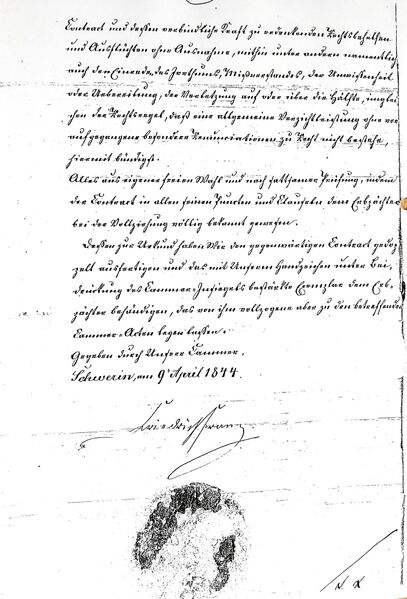 Contract und dessen verbindliche Kraft zu erdenkenden Rechtsbehelfen
und Ausflüchten ohne Ausnahme, mithin unter andern namentlich
auch der Einrede, des Irrthums, Mißverstandes, der Unwissenheit
oder Uebereilung, der Verletzung auf oder über die Hälfte, inglei
chen der Rechtsregel, daß eine allgemeine Verzichtleistung ohne vor
aufgegangene besondere Renunciationen zu Recht nicht bestehe,
hiermit bündigst.
Alles aus eigener freien Wahl und nach sattsamer Prüfung, indem
der Contract in allen seinen Puncten und Clauseln dem Erbpächter
bei der Vollziehung völlig bekannt gewesen.
Dessen zur Urkund haben Wir den gegenwärtigen Contract gedop
pelt ausfertigen und das mit Unserm Handzeichen unter Bei
drückung des Cammer-Insiegels bestärkte Exemplar dem Erb
pächter behändigen, das von ihm vollzogene aber zu den betreffenden
Cammer-Acten legen lassen.
Gegeben durch Unsere Cammer.
Schwerin, am 9 April 1844.
Friedrich Franz